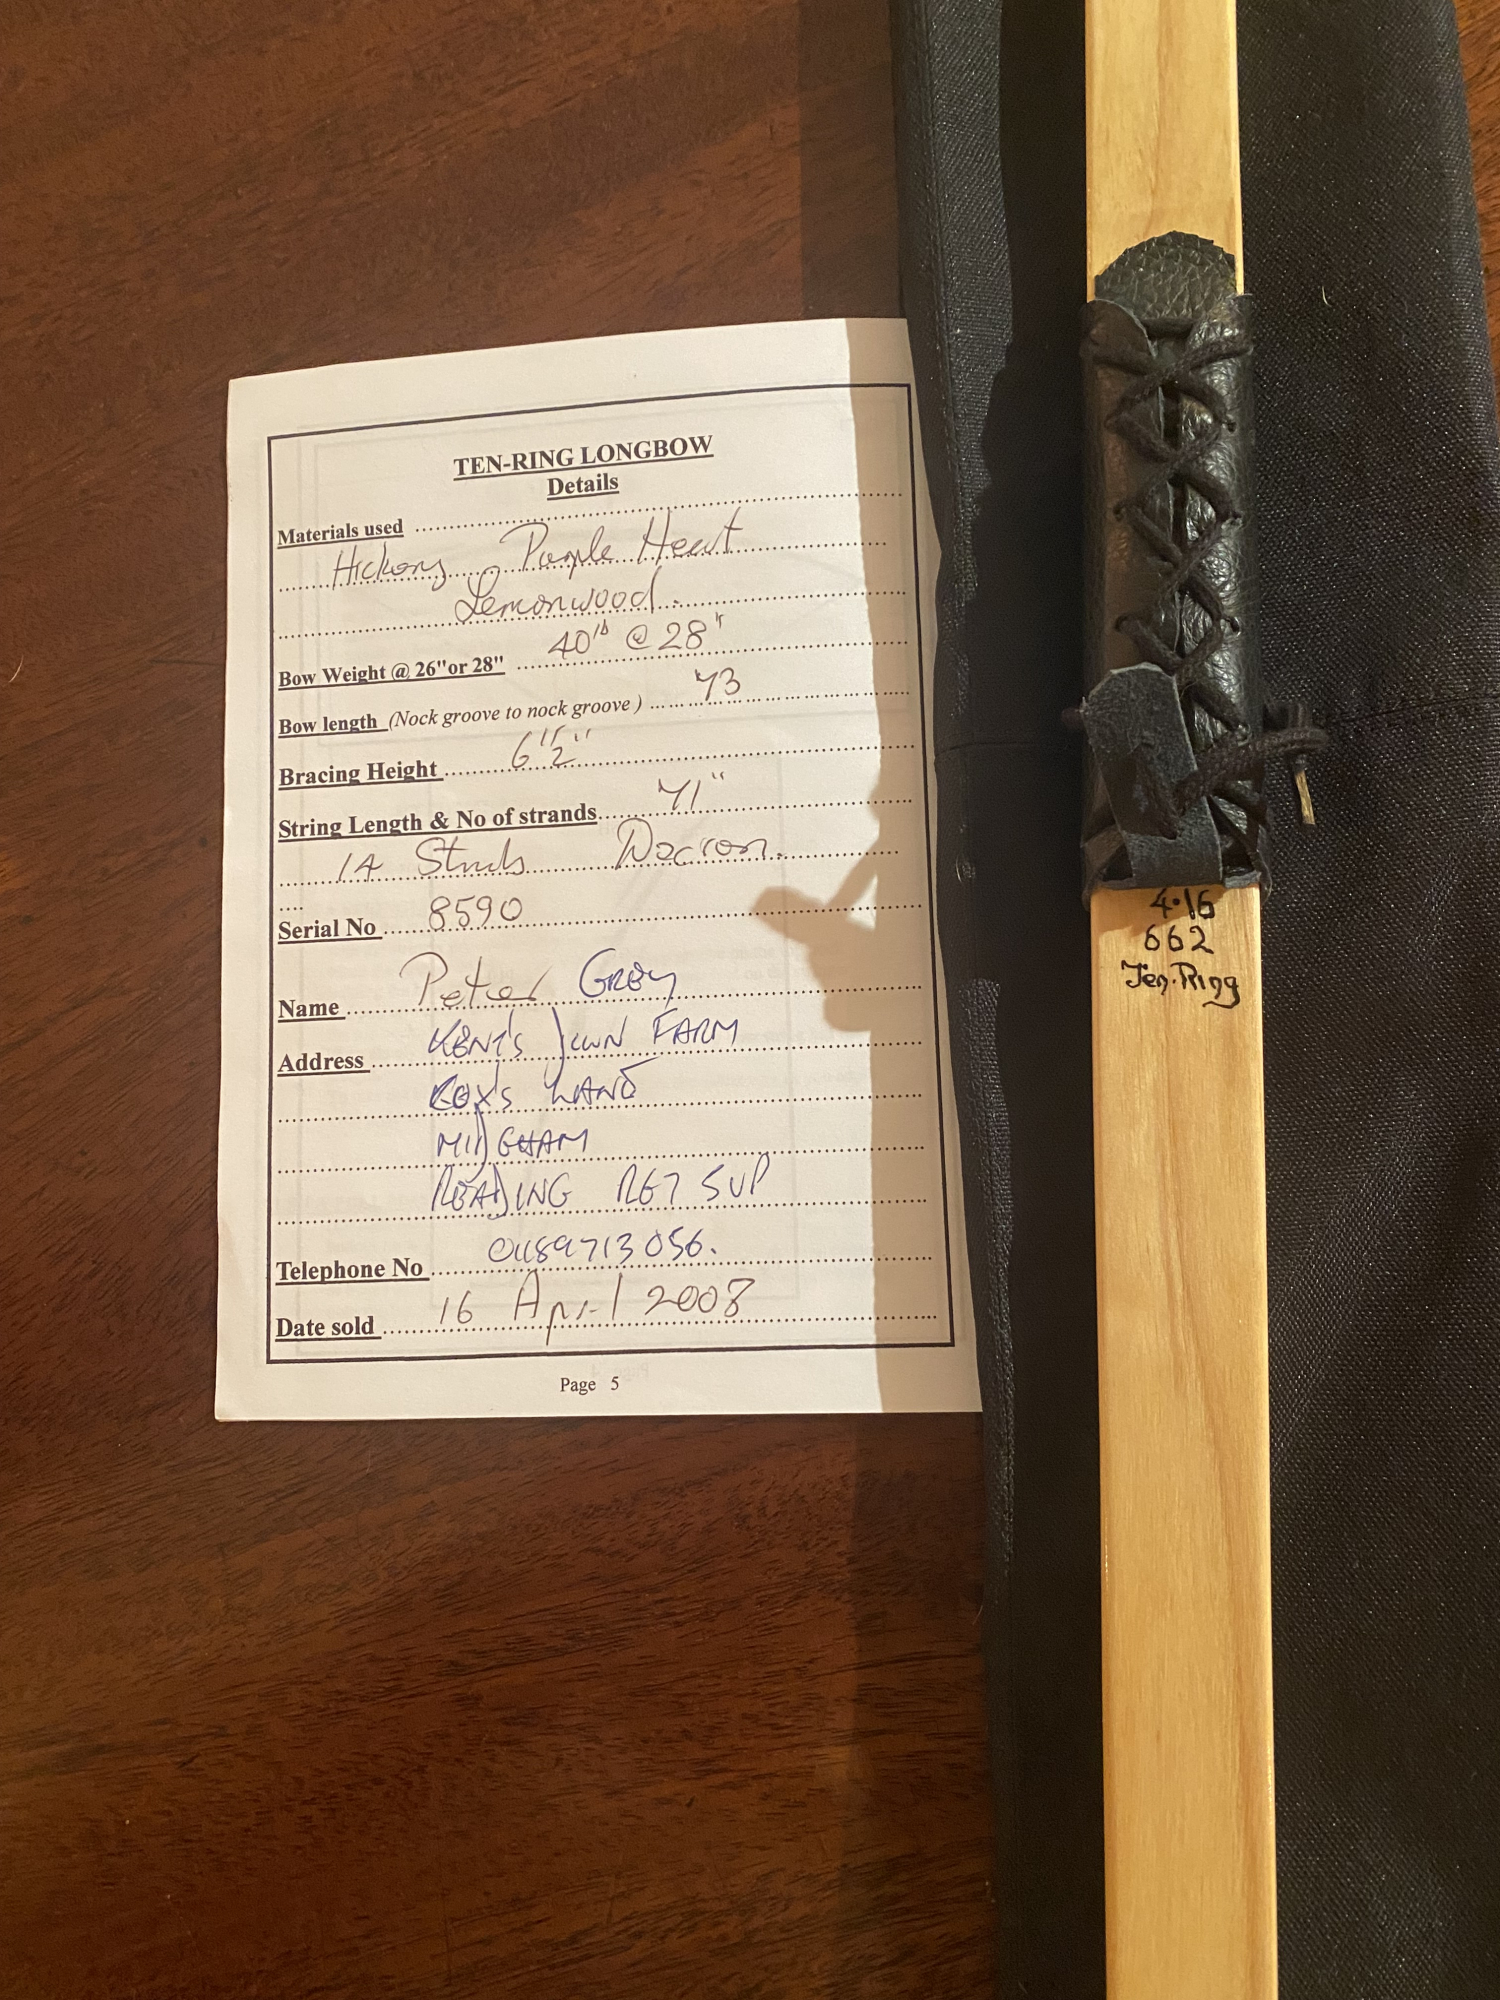 TEN-RING LONGBOW
Details
Materials used
Hickory Purple Heart
Lemonwood.
Bow Weight @ 26"or 28" 40lb @ 28"
Bow length (Nock groove to nock groove) 73
Bracing Height 6 1/2"
String Length & No of strands 71"
14 Strnds Dacron.
Serial No 8590
Name Peter Grey
Address KENT'S DOWN FARM
COX'S LANE
MIDGHAM
READING RG7 5UP
Telephone No 01189713056.
Date sold 16 April 2008
Page 5
4.16
662
Ten-Ring